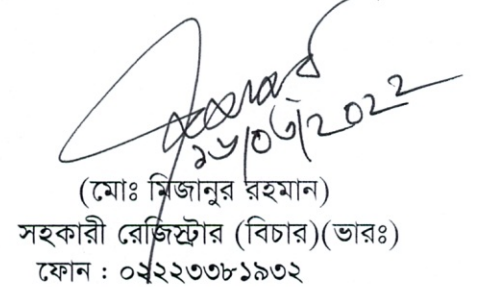 ১৬/০৩/২০২২
(মোঃ মিজানুর রহমান)
সহকারী রেজিস্ট্রার (বিচার)(ভারঃ)
ফোন : ০২২২৩৩৮১৯৩২